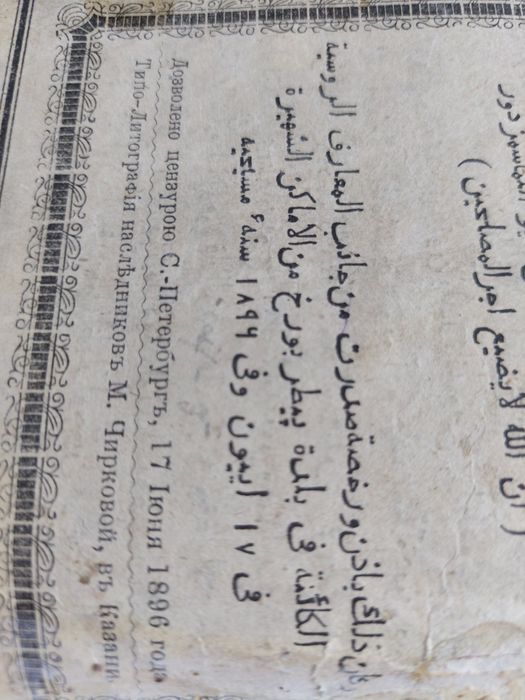 دور
( ان الله لا يضيع اجر المصلحين )
كان ذلك باذن و رخصة صدرت من جانب المعارف الروسية
الكائنة فى بلدة پيطر بورغ من الاماكن الشهيرة
فى ١٧ اييون وفى ١٨٩٦ سنهٔ مسيحيه
Дозволено цензурою С.-Петербургъ, 17 Іюня 1896 года
Типо-Литографія наслѣдниковъ М. Чирковой, въ Казани